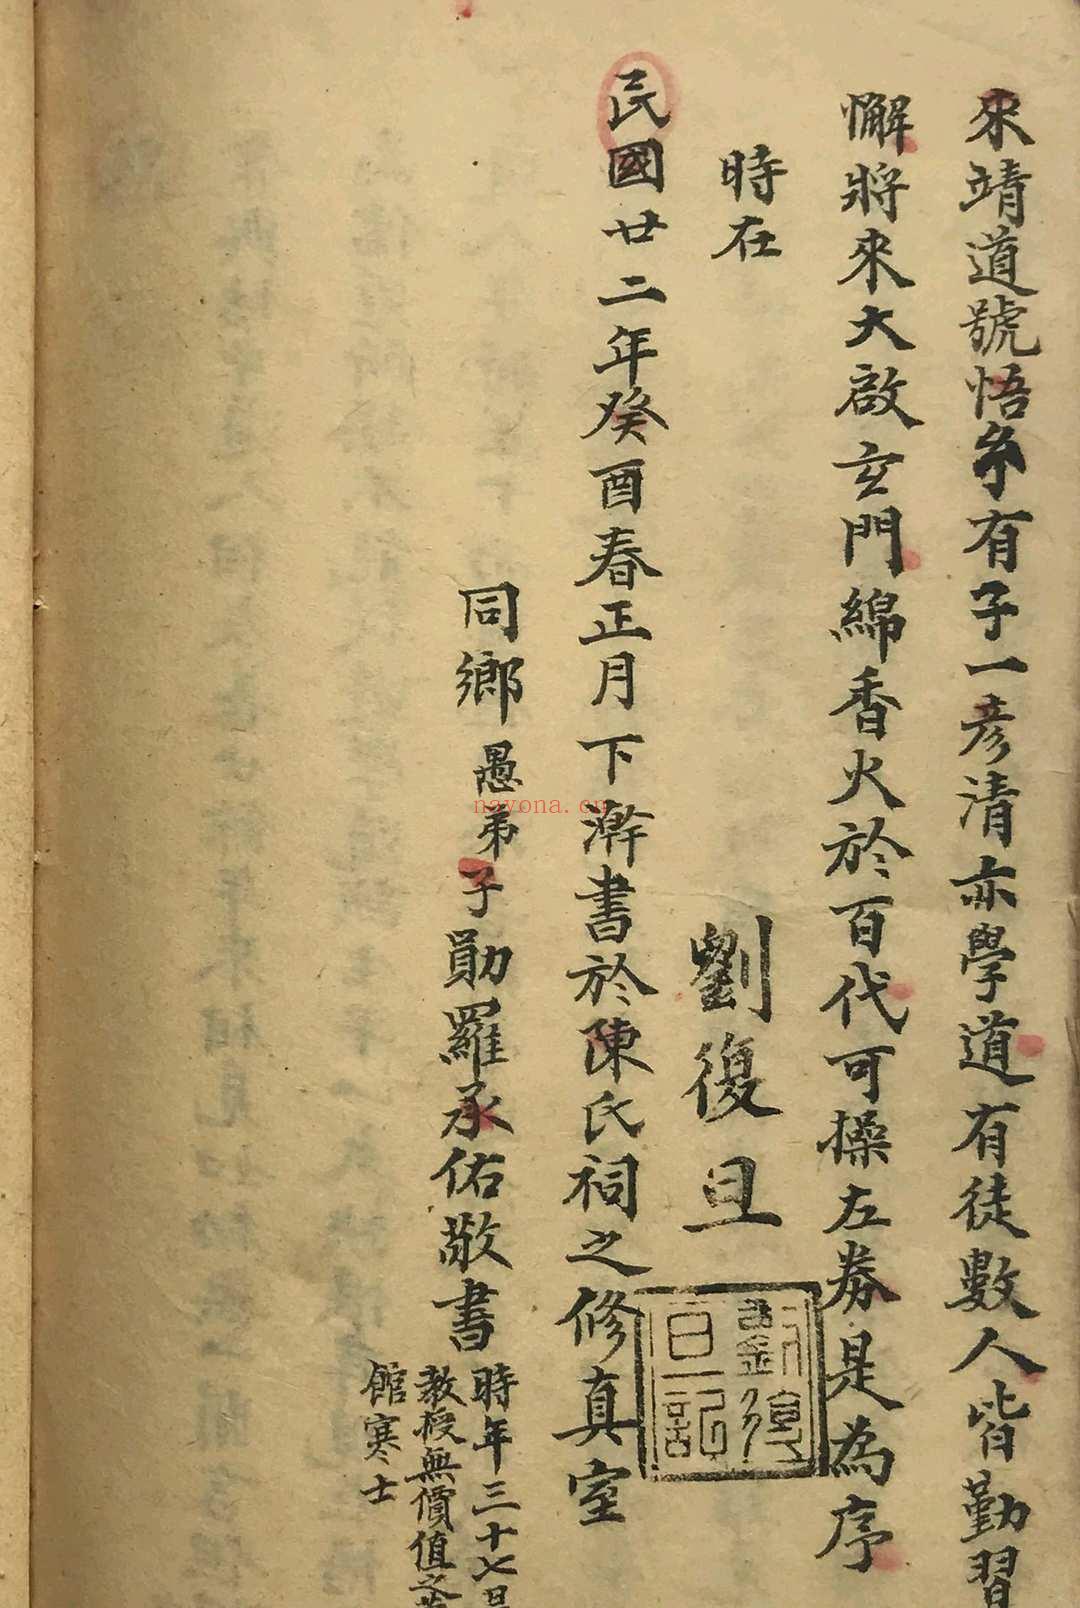 來靖道號悟有子一彥清亦學道有徒數人皆勤習
懈將來大啟玄門綿香火於百代可操左券是為序
時在
劉復旦
劉復旦記
民國廿二年癸酉春正月下澣書於陳氏祠之修真室
同鄉愚弟子勛羅承佑敬書
時年三十七
教授無價值之
館寒士
nayona.cn